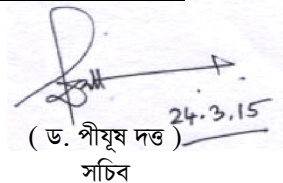 24.3.15
( ড. পীযূষ দত্ত )
সচিব